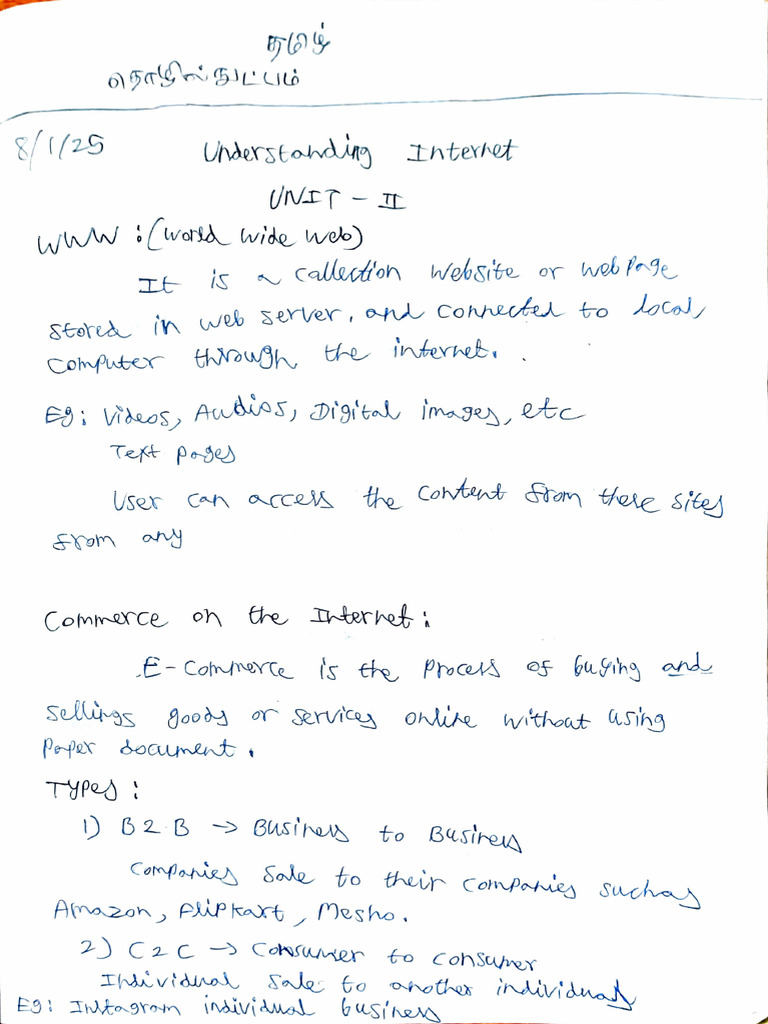 தமிழ்
தொழில்நுட்பம்
8/1/25 Understanding Internet
UNIT - II
WWW : (World Wide Web)
It is a callection website or web page
stored in web server, and connected to local,
computer through the internet.
Eg: Videos, Audios, Digital images, etc
Text pages
User can access the content from these sites
from any
Commerce on the Internet:
E-Commerce is the process of buying and
sellings goods or services online without using
paper document.
Types:
1) B2B → Business to Business
Companies sale to their companies suchas
Amazon, Flipkart, Mesho.
2) C2C → Consumer to consumer
Individual sale to another individuals
Eg: Instagram individual business